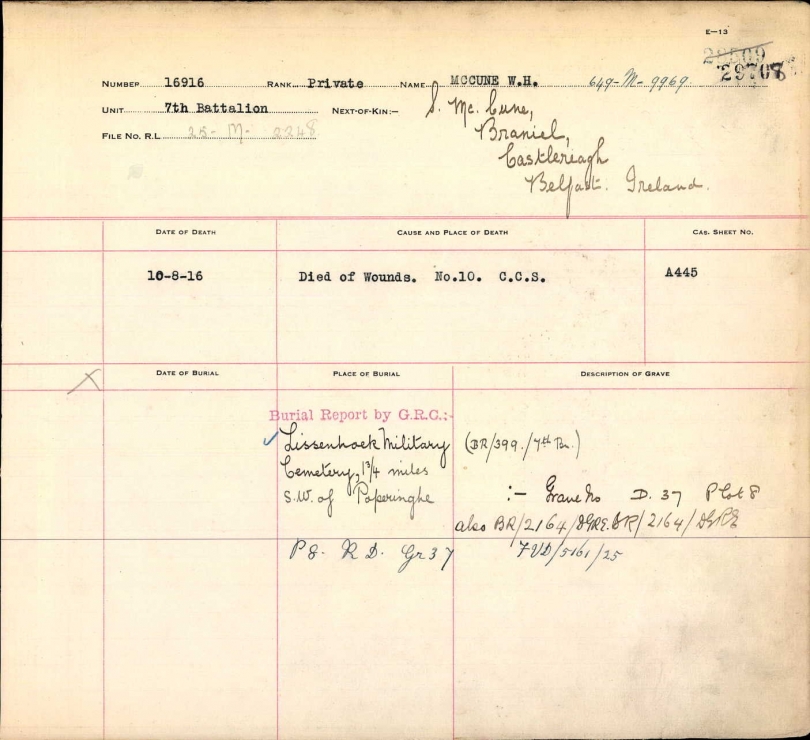 E—13
29707
NUMBER 16916 RANK Private NAME MCCUNE W.H. 649-M-9969
UNIT 7th Battalion NEXT-OF-KIN:— S. Mc.Cune,
Braniel,
FILE NO. R.L 25-M-2248
Castlereagh
Belfast. Ireland.
DATE OF DEATH CAUSE AND PLACE OF DEATH CAS. SHEET NO.
10-8-16 Died of Wounds. No.10. C.C.S. A445
DATE OF BURIAL PLACE OF BURIAL DESCRIPTION OF GRAVE
X
Burial Report by G.R.C.:-
Lissenhoek Military (BR/399./7th Bn.)
Cemetery, 1 3/4 miles
S.W. of Poperinghe :— Grave No D. 37 Plot 8
also BR/2164/DGRE.BR/2164/DGRE
P8. R D. Gr 37 FVD/5161/25